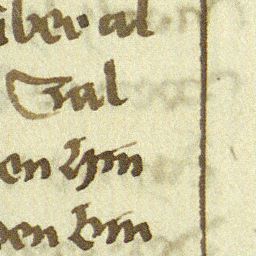 über al
Zal
en hin
en bin